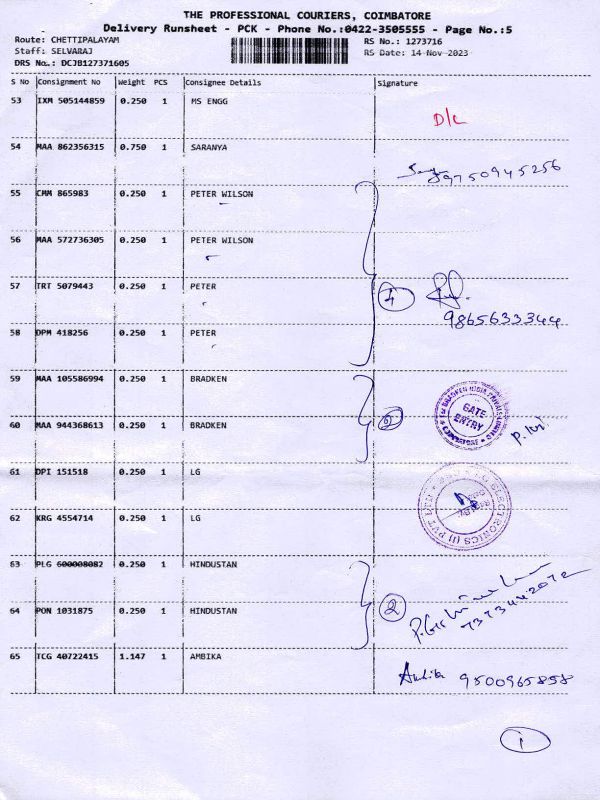 THE PROFESSIONAL COURIERS, COIMBATORE
Delivery Runsheet - PCK - Phone No.:0422-3505555 - Page No.:5
Route: CHETTIPALAYAM RS No.: 1273716
Staff: SELVARAJ RS Date: 14-Nov-2023
DRS No.: DCJB127371605
S No Consignment No Weight PCS Consignee Details Signature
53 IXM 505144859 0.250 1 MS ENGG D/L
54 MAA 862356315 0.750 1 SARANYA 9750945256
55 CMM 865983 0.250 1 PETER WILSON
56 MAA 572736305 0.250 1 PETER WILSON
57 TRT 5079443 0.250 1 PETER 4
9865633344
58 DPM 418256 0.250 1 PETER
59 MAA 105586994 0.250 1 BRADKEN GATE ENTRY
60 MAA 944368613 0.250 1 BRADKEN
61 DPI 151518 0.250 1 LG
62 KRG 4554714 0.250 1 LG
63 PLG 600008082 0.250 1 HINDUSTAN
64 PON 1031875 0.250 1 HINDUSTAN 2
7373442072
65 TCG 40722415 1.147 1 AMBIKA Ambika 9500965858
1